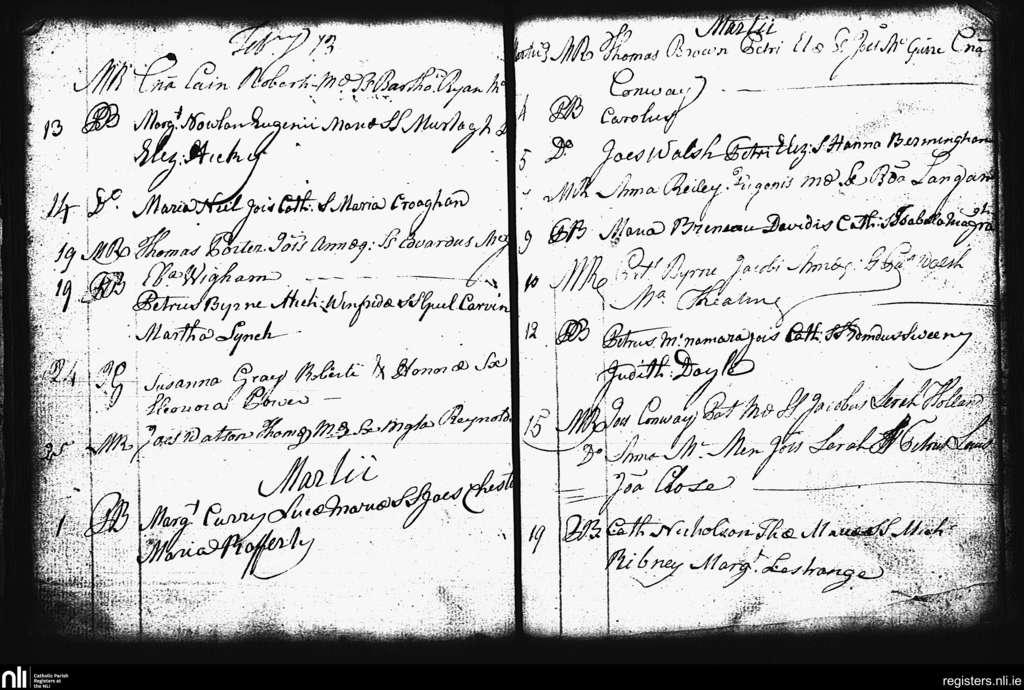 Feb^ry 13
MR Cna Cain Roberti Mæ S Bartho: Ryan
13 PB Marg^t. Nowlan Eugenii Mariæ SS Murtagh
Eliz: Hicky
14 D^o. Maria Neil Jois Cath. S Maria Croaghan
19 MR Thomas Porter Jois Annæq: Ss Edvardus
Wigham
19 PB Petrus Byrne Mich: Winfridæ SS Guil Carvin
Martha Lynch
24 Susanna Gray Roberti & Honoræ Sx
Eleonora Power
25 MR Joes Watson Thom Mæ Sx Reynolds
Martii
1 PB Marg^t Curry Lucæ Mariæ SS Joes
Maria Rafferty
Martii
MR Thomas Brown Petri Elæ Joes M^c Guire Cna
Conway
4 PB Carolus
5 D^o. Joes Walsh Petri Eliz: S Hanna Bermingham
MR Anna Reiley Eugenis Mæ Langan
9 PB Maria Breneau Davidis Cath: S Isabella
10 MR Byrne Jacobi Annæq: Walsh
M^a
12 PB Petrus M^cnamara Jois Cath. SS Sweeny
Judith Doyle
15 MR Jos Conway Pat Mæ SS Jacobus Sarah Holland
D^o Anna M^c Men Jois Sarah Petrus
Joa Close
19 PB. Cath Nicholson Thæ Mariæ SS Mich
Ribney Marg^t. Lestrange
nli Catholic Parish
Registers at
the NLI
registers.nli.ie